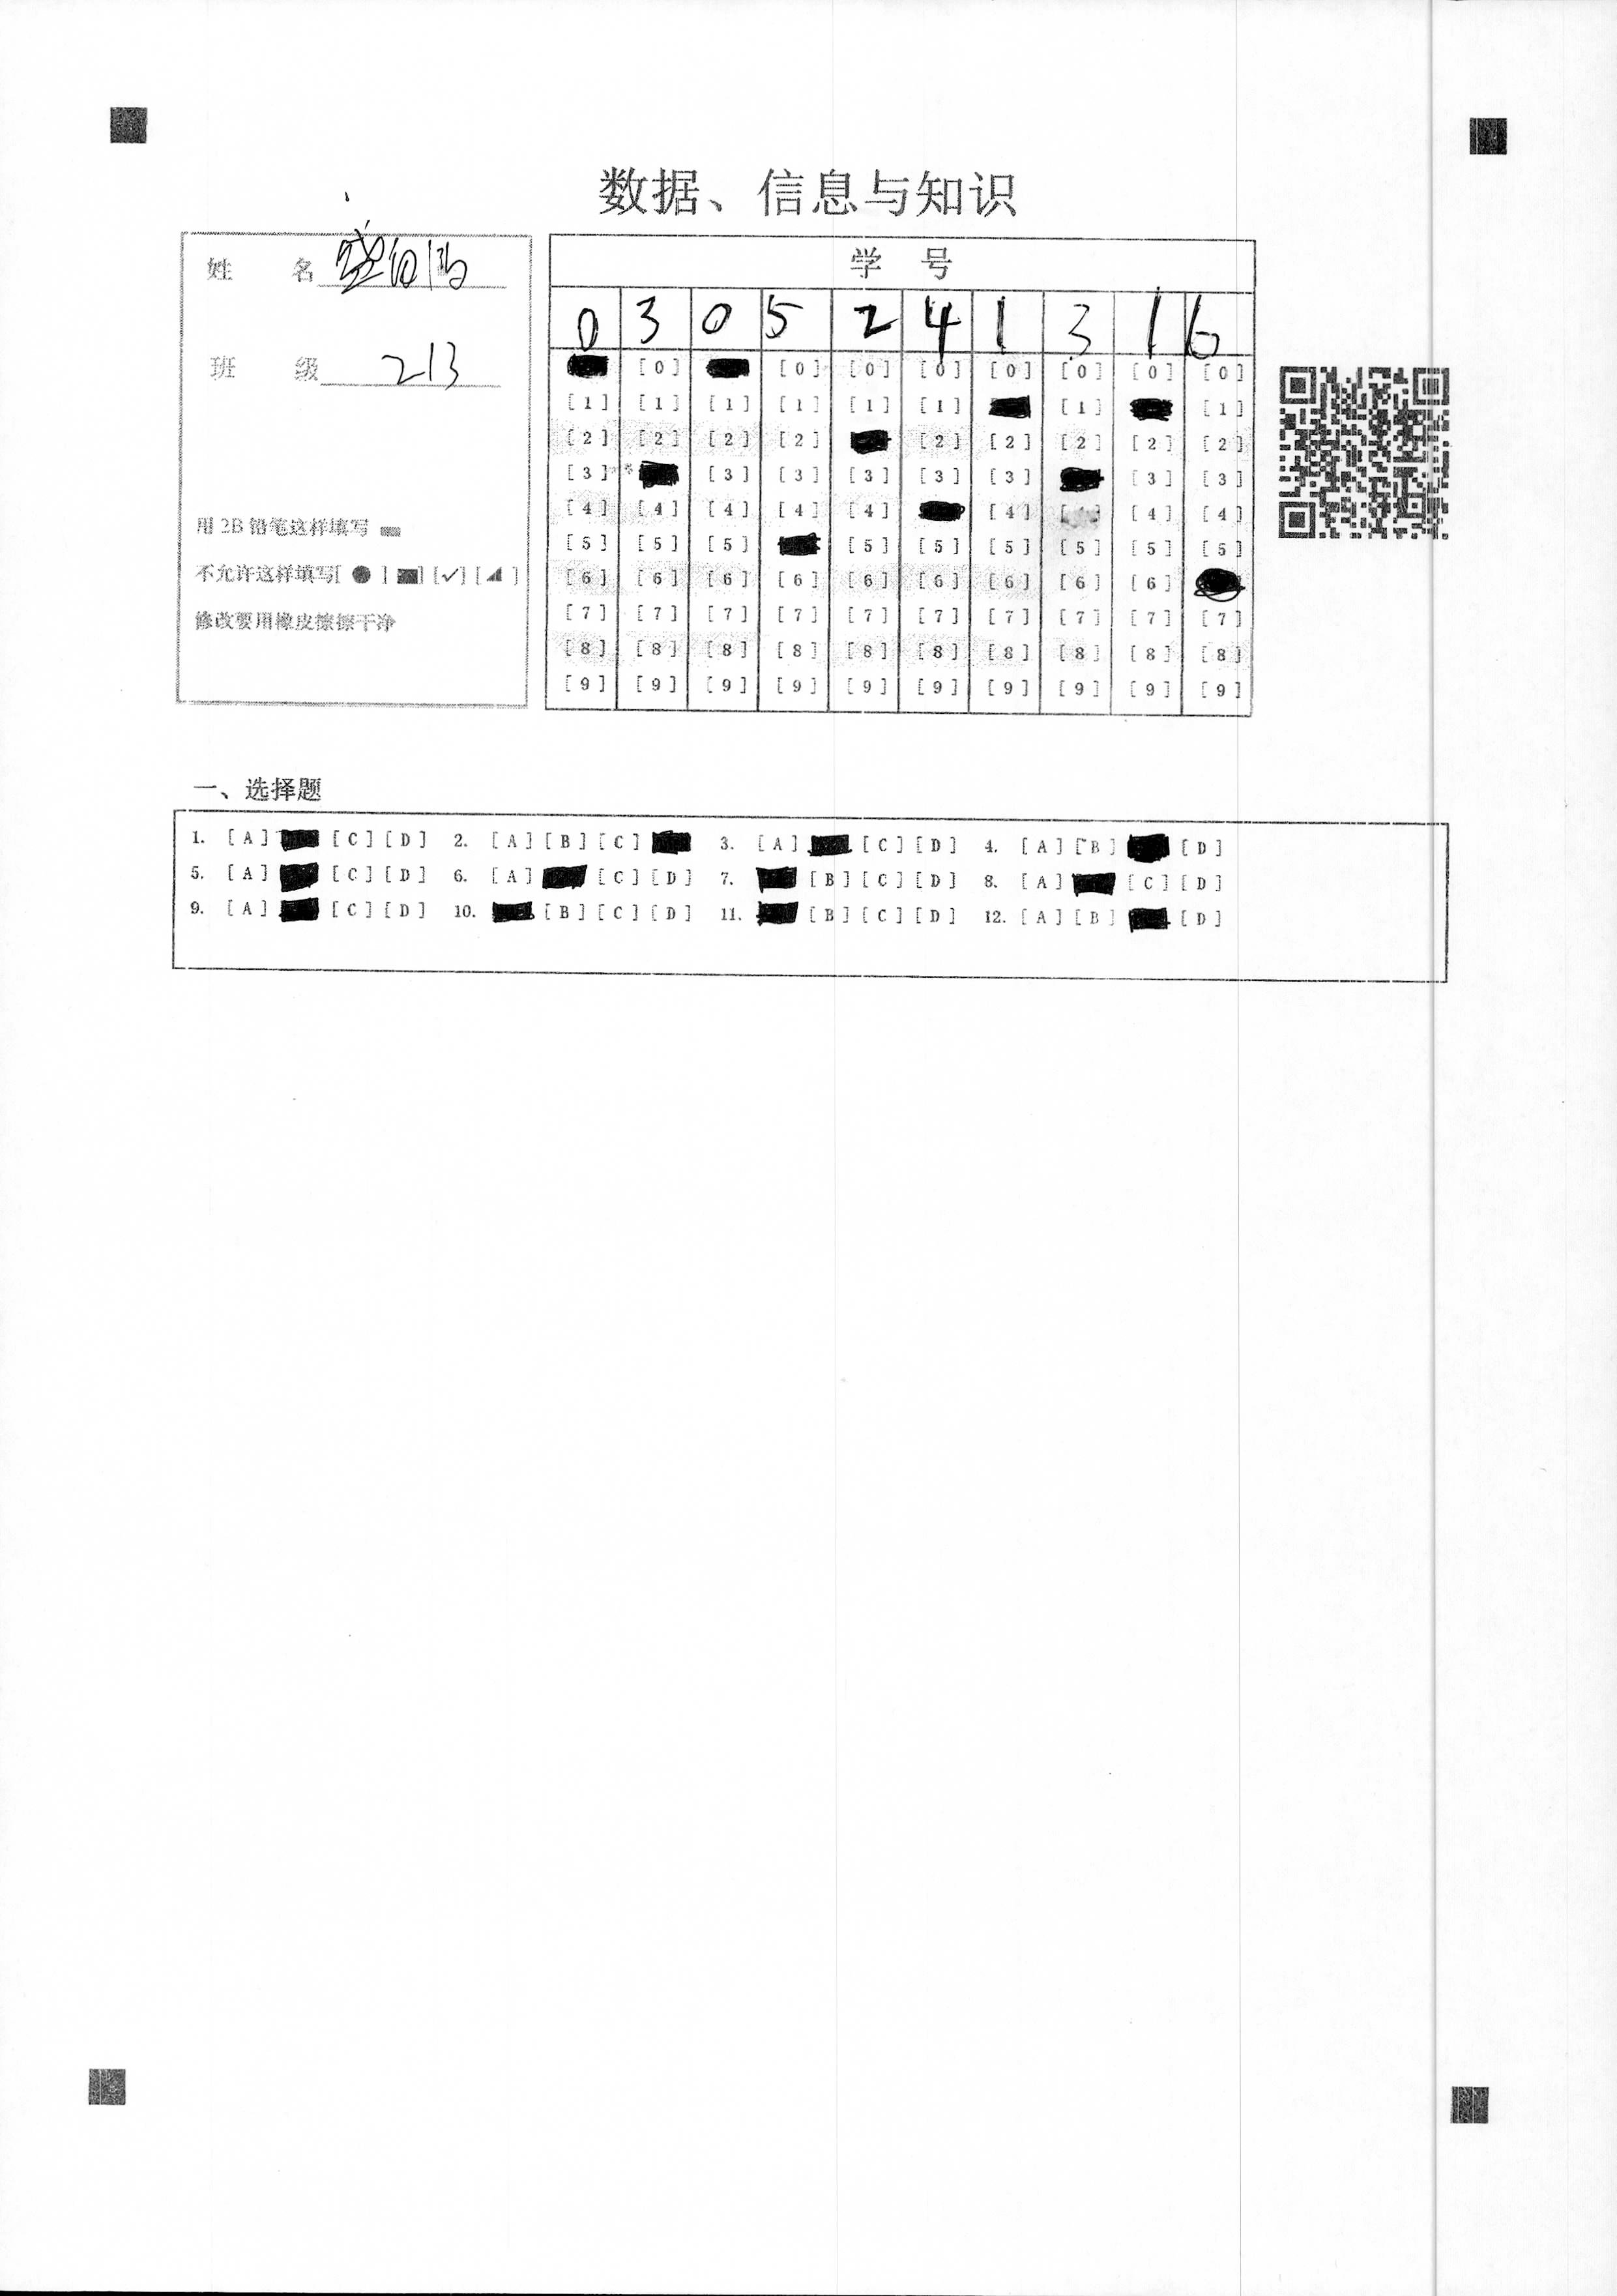 数据、信息与知识
姓 名
班 级 213
用 2B 铅笔这样填写
不允许这样填写[ ● ] [■] [✓] [◢ ]
修改要用橡皮擦擦干净
学 号
0 3 0 5 2 4 1 3 1 6
[0] [0] [0] [0] [0] [0] [0]
[1] [1] [1] [1] [1] [1] [1] [1]
[2] [2] [2] [2] [2] [2] [2] [2] [2]
[3] [3] [3] [3] [3] [3] [3] [3]
[4] [4] [4] [4] [4] [4] [4] [4]
[5] [5] [5] [5] [5] [5] [5] [5] [5]
[6] [6] [6] [6] [6] [6] [6] [6] [6]
[7] [7] [7] [7] [7] [7] [7] [7] [7] [7]
[8] [8] [8] [8] [8] [8] [8] [8] [8] [8]
[9] [9] [9] [9] [9] [9] [9] [9] [9] [9]
一、选择题
1. [A] [C] [D] 2. [A] [B] [C] 3. [A] [C] [D] 4. [A] [B] [D]
5. [A] [C] [D] 6. [A] [C] [D] 7. [B] [C] [D] 8. [A] [C] [D]
9. [A] [C] [D] 10. [B] [C] [D] 11. [B] [C] [D] 12. [A] [B] [D]